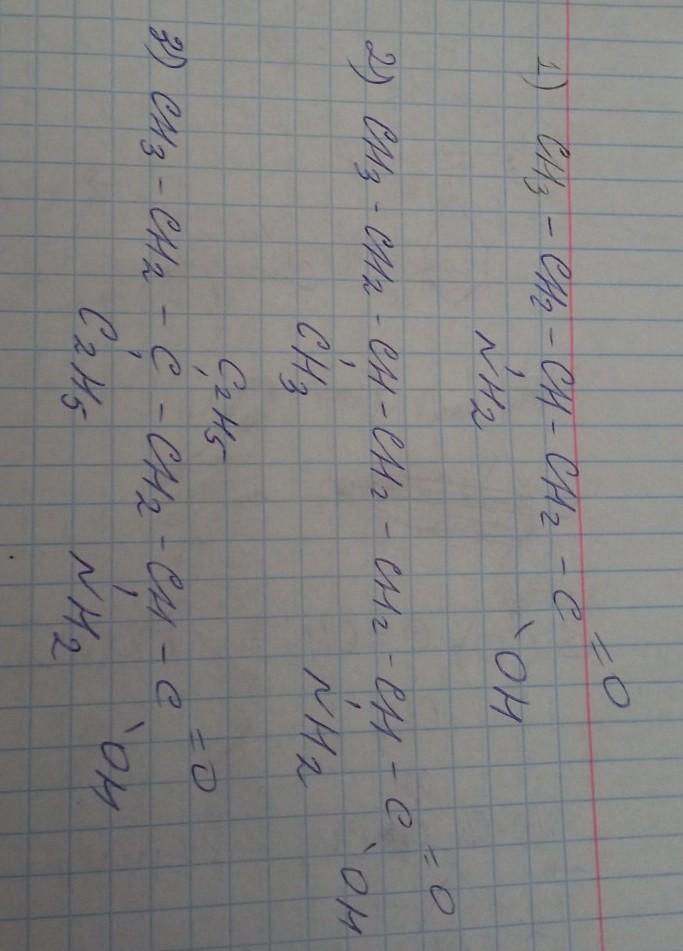 1) CH3 - CH2 - CH - CH2 - C = O
NH2 OH
2) CH3 - CH2 - CH - CH2 - CH2 - CH - C = O
CH3 NH2 OH
C2H5
3) CH3 - CH2 - C - CH2 - CH - C = O
C2H5 NH2 OH